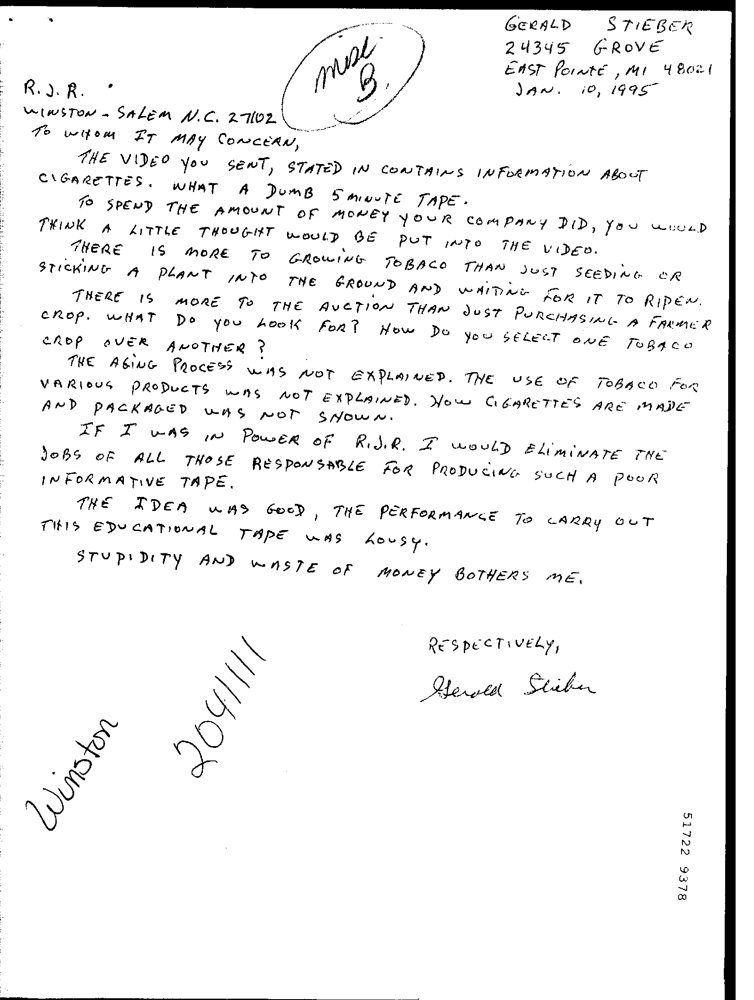 GERALD STIEBER
24345 GROVE
EAST POINTE, MI 48021
JAN. 10, 1995
misc.
B.
R.J.R.
WINSTON-SALEM N.C. 27102
TO WHOM IT MAY CONCERN,
THE VIDEO YOU SENT, STATED IN CONTAINS INFORMATION ABOUT
CIGARETTES. WHAT A DUMB 5 MINUTE TAPE.
TO SPEND THE AMOUNT OF MONEY YOUR COMPANY DID, YOU WOULD
THINK A LITTLE THOUGHT WOULD BE PUT INTO THE VIDEO.
THERE IS MORE TO GROWING TOBACO THAN JUST SEEDING OR
STICKING A PLANT INTO THE GROUND AND WAITING FOR IT TO RIPEN.
THERE IS MORE TO THE AUCTION THAN JUST PURCHASING A FARMER
CROP. WHAT DO YOU LOOK FOR? HOW DO YOU SELECT ONE TOBACO
CROP OVER ANOTHER?
THE AGING PROCESS WAS NOT EXPLAINED. THE USE OF TOBACO FOR
VARIOUS PRODUCTS WAS NOT EXPLAINED. HOW CIGARETTES ARE MADE
AND PACKAGED WAS NOT SHOWN.
IF I WAS IN POWER OF R.J.R. I WOULD ELIMINATE THE
JOBS OF ALL THOSE RESPONSABLE FOR PRODUCING SUCH A POOR
INFORMATIVE TAPE.
THE IDEA WAS GOOD, THE PERFORMANCE TO CARRY OUT
THIS EDUCATIONAL TAPE WAS LOUSY.
STUPIDITY AND WASTE OF MONEY BOTHERS ME.
RESPECTIVELY,
Gerald Stieber
Winston
2041111
51722 9378